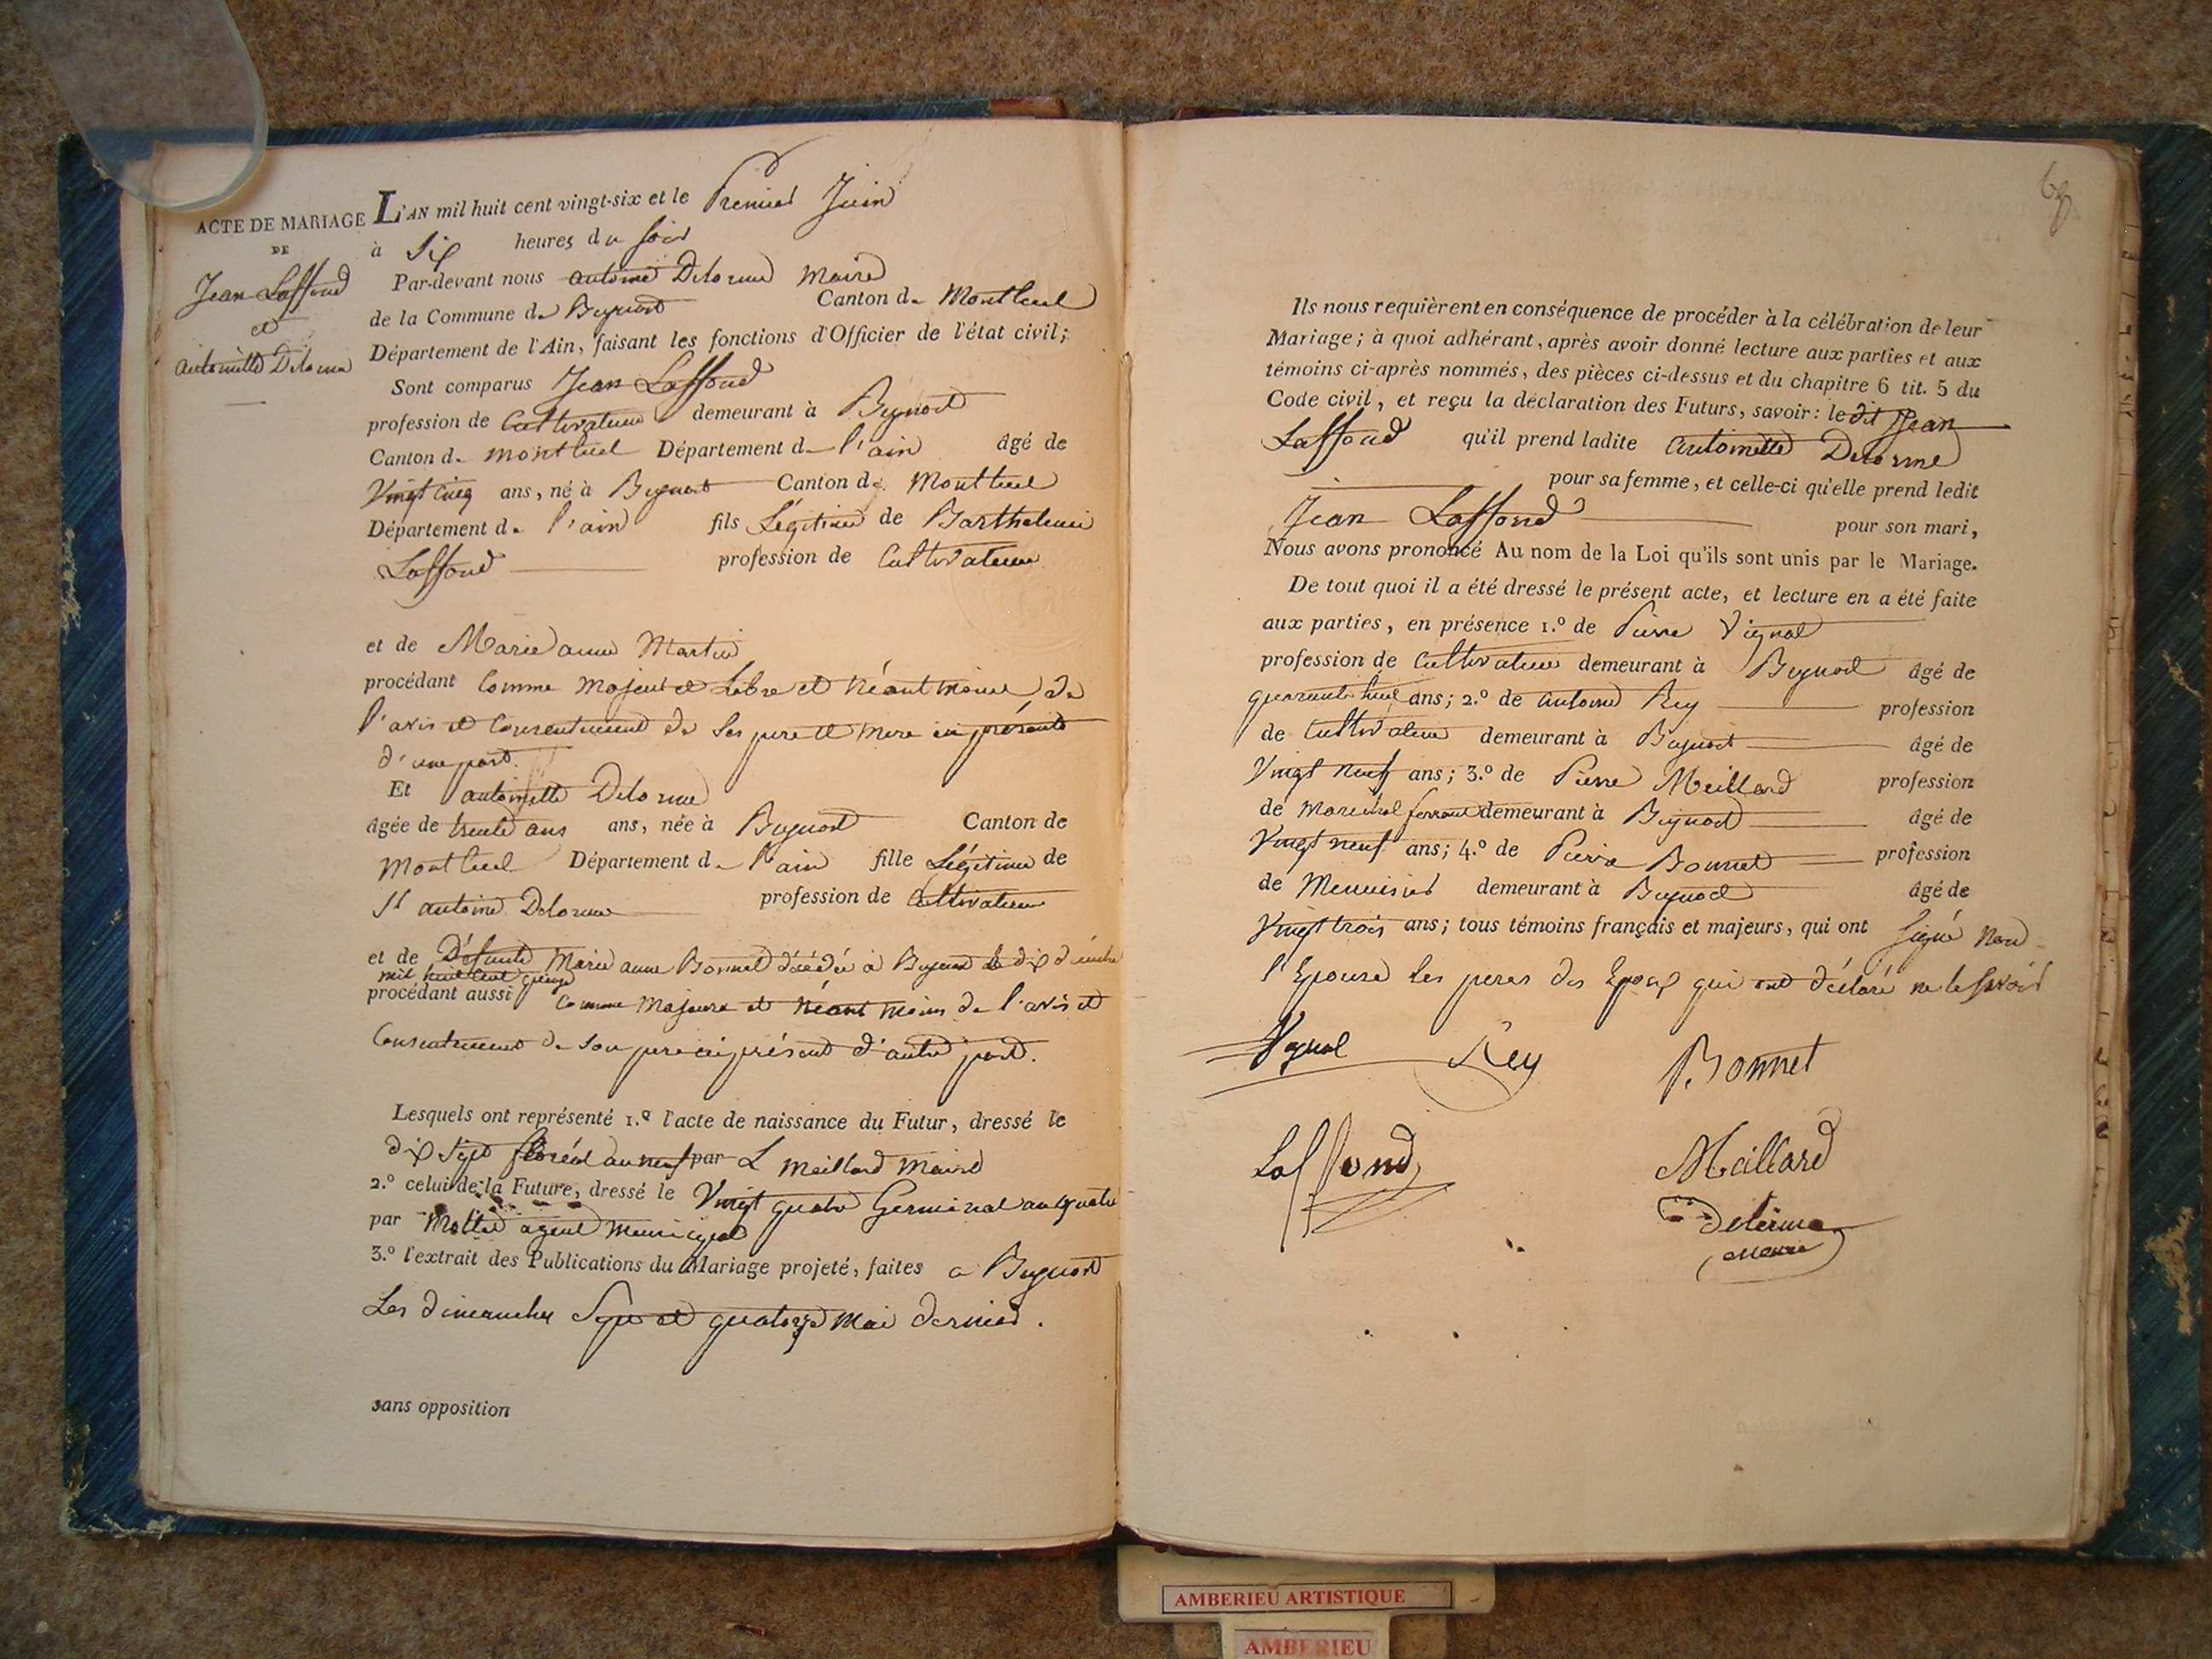 ACTE DE MARIAGE
DE
Jean Laffond
et
antoinette Delorme
L'AN mil huit cent vingt-six et le Premier Juin
à Six heures du soir
Par-devant nous antoine Delorme Maire
de la Commune de Beynost Canton de Montluel
Département de l'Ain, faisant les fonctions d'Officier de l'état civil;
Sont comparus Jean Laffond
profession de Cultivateur demeurant à Beynost
Canton de montluel Département de l'ain âgé de
Vingt cinq ans, né à Beynost Canton de Montluel
Département de l'ain fils Légitime de Barthelemi
Laffond profession de Cultivateur
et de Marie anne Martin
procédant Comme Majeur et Libre et Néantmoins de
l'avis et Consentement de ses pere et mere ici présents
d'une part.
Et antoinette Delorme
âgée de trente ans ans, née à Beynost Canton de
Montluel Département de l'ain fille Légitime de
St antoine Delorme profession de Cultivateur
et de Défunte Marie anne Bonnet décédée à Beynost le dix
mil huit cent
procédant aussi Comme Majeure et Néantmoins de l'avis et
Consentement de son pere ici présent d'autre part.
Lesquels ont représenté 1.º l'acte de naissance du Futur, dressé le
dix sept floréal an neuf par L Meillard Maire
2.º celui de la Future, dressé le Vingt quatre Germinal an quatre
par agent Municipal
3.º l'extrait des Publications du Mariage projeté, faites a Beynost
Les dimanches Sept et quatorze Mai dernier.
sans opposition
Ils nous requièrent en conséquence de procéder à la célébration de leur
Mariage; à quoi adhérant, après avoir donné lecture aux parties et aux
témoins ci-après nommés, des pièces ci-dessus et du chapitre 6 tit. 5 du
Code civil, et reçu la déclaration des Futurs, savoir: le dit Jean
Laffond qu'il prend ladite antoinette Delorme
pour sa femme, et celle-ci qu'elle prend ledit
Jean Laffond pour son mari,
Nous avons prononcé Au nom de la Loi qu'ils sont unis par le Mariage.
De tout quoi il a été dressé le présent acte, et lecture en a été faite
aux parties, en présence 1.º de Pierre Vignal
profession de Cultivateur demeurant à Beynost âgé de
quarante huit ans; 2.º de antoine Rey profession
de Cultivateur demeurant à Beynost âgé de
Vingt neuf ans; 3.º de Pierre Meillard profession
de Marechal ferrant demeurant à Beynost âgé de
Vingt neuf ans; 4.º de Pierre Bonnet profession
de Menuisier demeurant à Beynost âgé de
Vingt trois ans; tous témoins français et majeurs, qui ont signé Non
l'Epouse les peres des Epoux qui ont déclaré ne le savoir
Vignal Rey Bonnet
Laffond Meillard
Delorme
Maire
AMBERIEU ARTISTIQUE
AMBERIEU